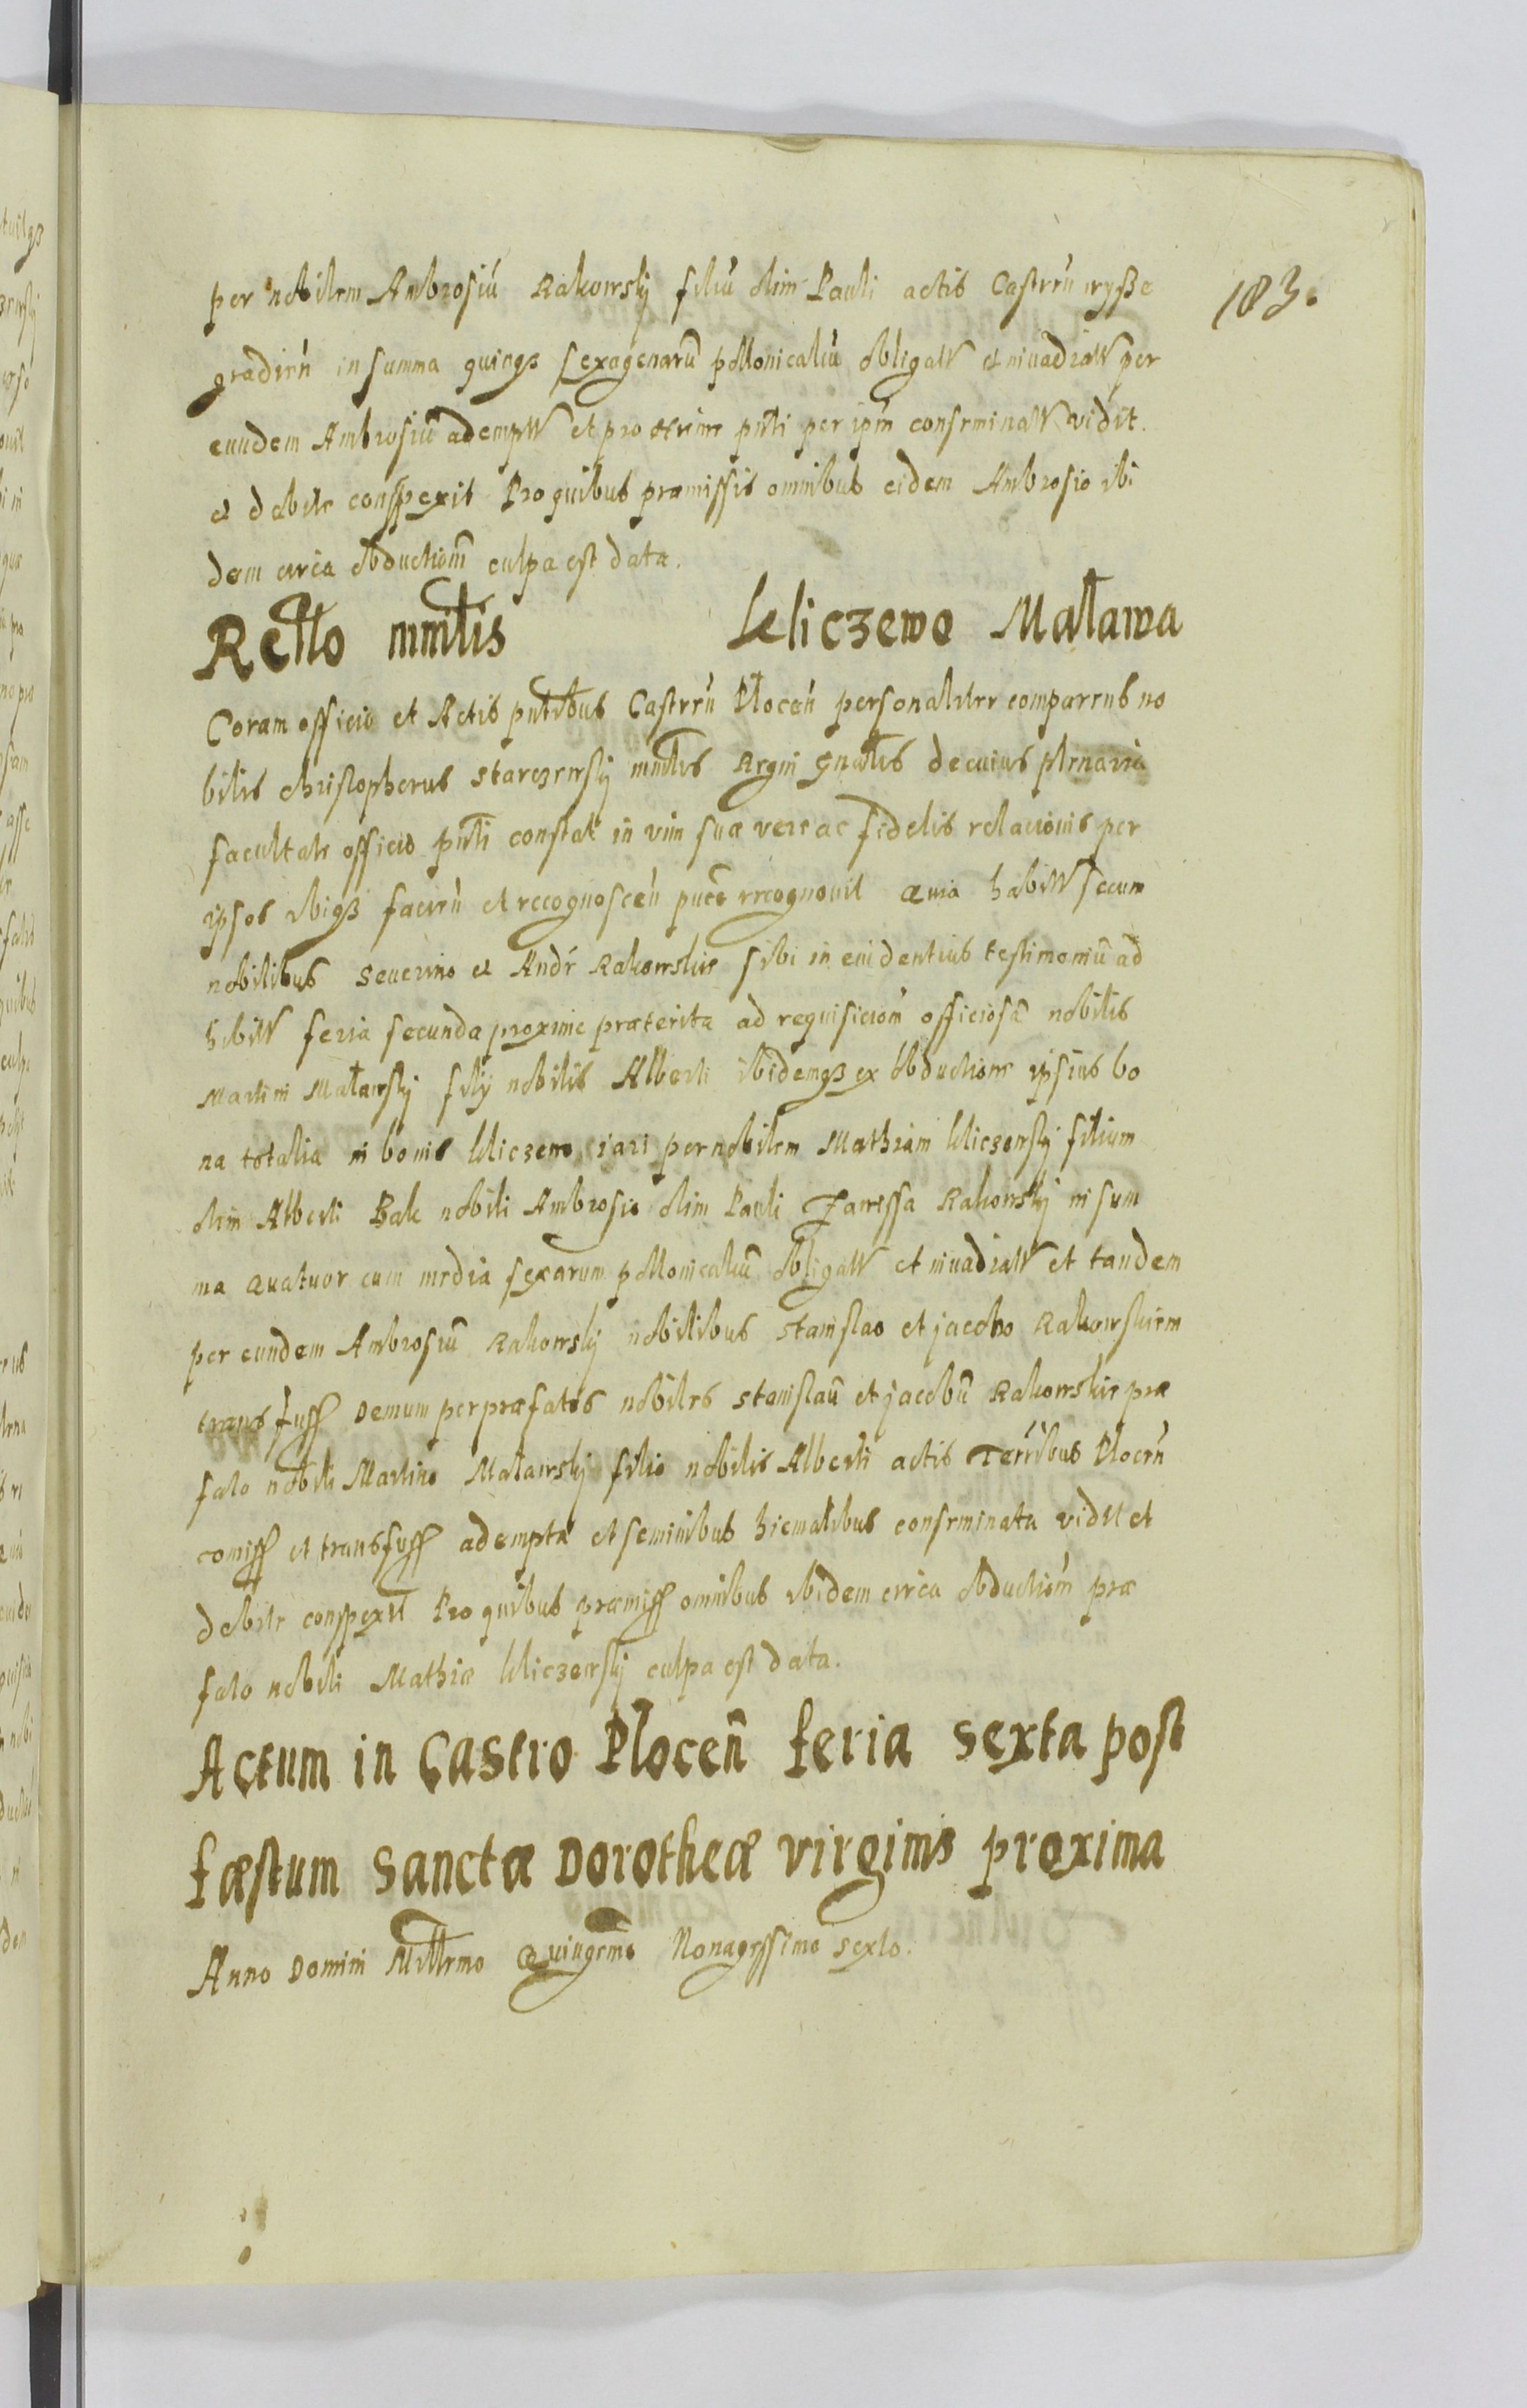 per nobilem Ambrosiū Rakowskÿ filiū olim Pauli actis Castreń wyße
183.
gradień in summa quinqз sexagenarū pollonicaliū obligatt et invadiatt per
eundem Ambrosiū adempt et pro pñti per ipm conseminatt vidit.
et debite conspexit Pro quibus præmissis omnibus eidem Ambrosio ibi
dem circa obductionē culpa est data.
Retło mintłis Leliczewo Maława
Coram officio et Actis pñtibus Castreń Płoceń personaliter comparens no
bilis Christopherus Starczewskÿ mintłis Regni gnałis de cuius plenaria
facultate officio pñti constat in vim suæ veræ ac fidelis relacionis per
ipsos ibiqз facień et recognosceń pñce recognovit Quia habitt secum
nobilibus Severino et Andŕ Rakowskie sibi in evidentius testimoniū ad
hibitt feria secunda proxime præterita ad requisicioń officiosā nobilis
Martini Mataẃskÿ filÿ nobilis Alberti ibidemqз ex obductione ipsius bo
na totalia in bonis leliczewo iari per nobilem Mathiam leliczewskÿ filium
olim Alberti Bale nobili Ambrosio olim Pauli Zarissa Rakowskÿ in sum
ma Quatuor cum media sexarum pollonicaliū obligatt et invadiatt et tandem
per eundem Ambrosiū Rakowskÿ nobilibus Stanislao et jacobo Rakowskiem
transfuss Demum per præfatos nobiles Stanislaū et jacobū Rakowskie præ
fato nobili Martino Maławskÿ filio nobilis Alberti actis Terribus Płoceń
comiss et transfuss adempta et seminibus hiemalibus conseminata vidit et
debite conspexit Pro quibus præmiss omnibus ibidem circa obductioń præ
fato nobili Mathiæ leliczewskÿ culpa est data.
Actum in Castro Płoceñ feria sexta post
fæstum Sanctæ Dorotheæ virginis proxima
Anno Domini Millemo Quingemo Nonagessimo sexto.